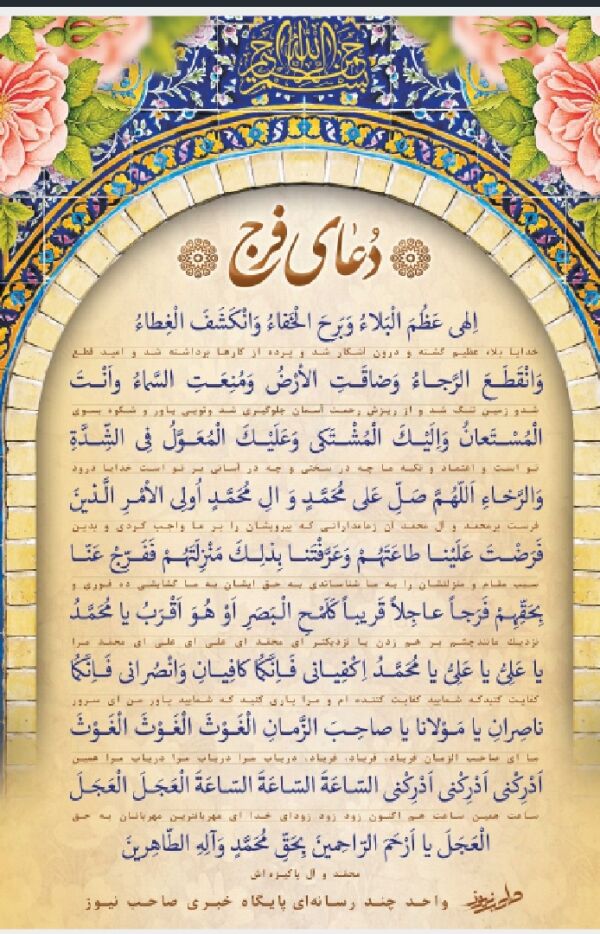 بسم الله الرحمن الرحیم
دُعای فرج
اِلهی عَظُمَ الْبَلاءُ وَبَرِحَ الْخَفاءُ وَانْكَشَفَ الْغِطاءُ
خدایا بلاء عظیم گشته و درون آشکار شد و پرده از کارها برداشته شد و امید قطع
وَانْقَطَعَ الرَّجاءُ وَضاقَتِ الاَرْضُ وَمُنِعَتِ السَّماءُ واَنْتَ
شدو زمین تنگ شد و از ریزش رحمت آسمان جلوگیری شد وتویی یاور و شکوه بسوی
الْمُسْتَعانُ وَاِلَیْكَ الْمُشْتَكى وَعَلَیْكَ الْمُعَوَّلُ فِى الشِّدَّةِ
تو است و اعتماد و تکیه ما چه در سختی و چه در آسانی بر تو است خدایا درود
وَالرَّخاءِ اَللّهُمَّ صَلِّ عَلى مُحَمَّدٍ وَ الِ مُحَمَّدٍ اُولِى الاَمْرِ الَّذینَ
فرست برمحمد و آل محمد آن زمامدارانی که پیرویشان را بر ما واجب کردی و بدین
فَرَضْتَ عَلَیْنا طاعَتَهُمْ وَعَرَّفْتَنا بِذلِكَ مَنْزِلَتَهُمْ فَفَرِّجْ عَنّا
سبب مقام و منزلتشان را به ما شناساندی به حق ایشان به ما گشایشی ده فوری و
بِحَقِّهِمْ فَرَجاً عاجِلاً قَریباً كَلَمْحِ الْبَصَرِ اَوْ هُوَ اَقْرَبُ یا مُحَمَّدُ
نزدیک مانندچشم بر هم زدن یا نزدیکتر ای محمد ای علی ای علی ای محمد مرا
یا عَلِىُّ یا عَلِىُّ یا مُحَمَّدُ اِكْفِیانى فَاِنَّكُما كافِیانِ وَانْصُرانى فَاِنَّكُما
کفایت کنیدکه شمایید کفایت کننده ام و مرا یاری کنید که شمایید یاور من ای سرور
ناصِرانِ یا مَوْلانا یا صاحِبَ الزَّمانِ الْغَوْثَ الْغَوْثَ الْغَوْثَ
ما ای صاحب الزمان فریاد، فریاد، فریاد، دریاب مرا دریاب مرا دریاب مرا همین
اَدْرِكْنى اَدْرِكْنى اَدْرِكْنى السّاعَةَ السّاعَةَ السّاعَةَ الْعَجَلَ الْعَجَلَ
ساعت همین ساعت هم اکنون زود زود زودای خدا ای مهربانترین مهربانان به حق
الْعَجَلَ یا اَرْحَمَ الرّاحِمینَ بِحَقِّ مُحَمَّدٍ وَآلِهِ الطّاهِرینَ
محمد و آل پاکیزه‌اش
واحد چند رسانه‌ای پایگاه خبری صاحب نیوز